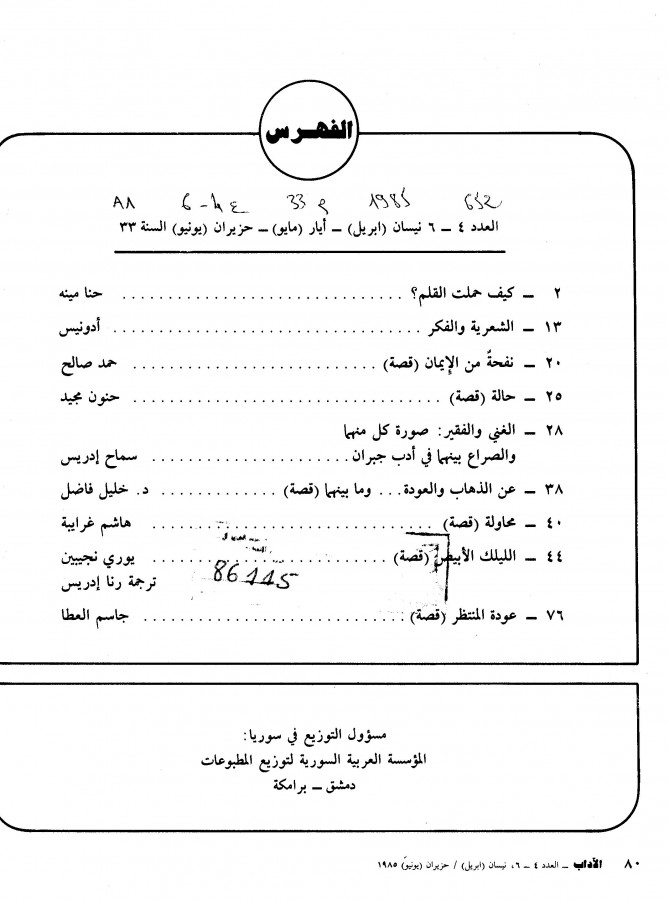 الفهرس
652 1985 33 م 4-6 ع 88
العدد ٤ – ٦ نيسان (ابريل) – أيار (مايو) – حزيران (يونيو) السنة ٣٣
٢ – كيف حملت القلم؟ .............................. حنا مينه
١٣ – الشعرية والفكر .............................. أدونيس
٢٠ – نفحةٌ من الإيمان (قصة) .......................... حمد صالح
٢٥ – حالة (قصة) .............................. حنون مجيد
٢٨ – الغني والفقير: صورة كل منهما
والصراع بينهما في أدب جبران .............................. سماح إدريس
٣٨ – عن الذهاب والعودة ... وما بينهما (قصة) ............. د. خليل فاضل
٤٠ – محاولة (قصة) .............................. هاشم غرايبة
٤٤ – الليلك الأبيض (قصة) .............................. يوري نجيبين
ترجمة رنا إدريس
86115
٧٦ – عودة المنتظر (قصة) .............................. جاسم العطا
مسؤول التوزيع في سوريا:
المؤسسة العربية السورية لتوزيع المطبوعات
دمشق – برامكة
٨٠ الآداب – العدد ٤ – ٦، نيسان (ابريل) / حزيران (يونيو) ١٩٨٥